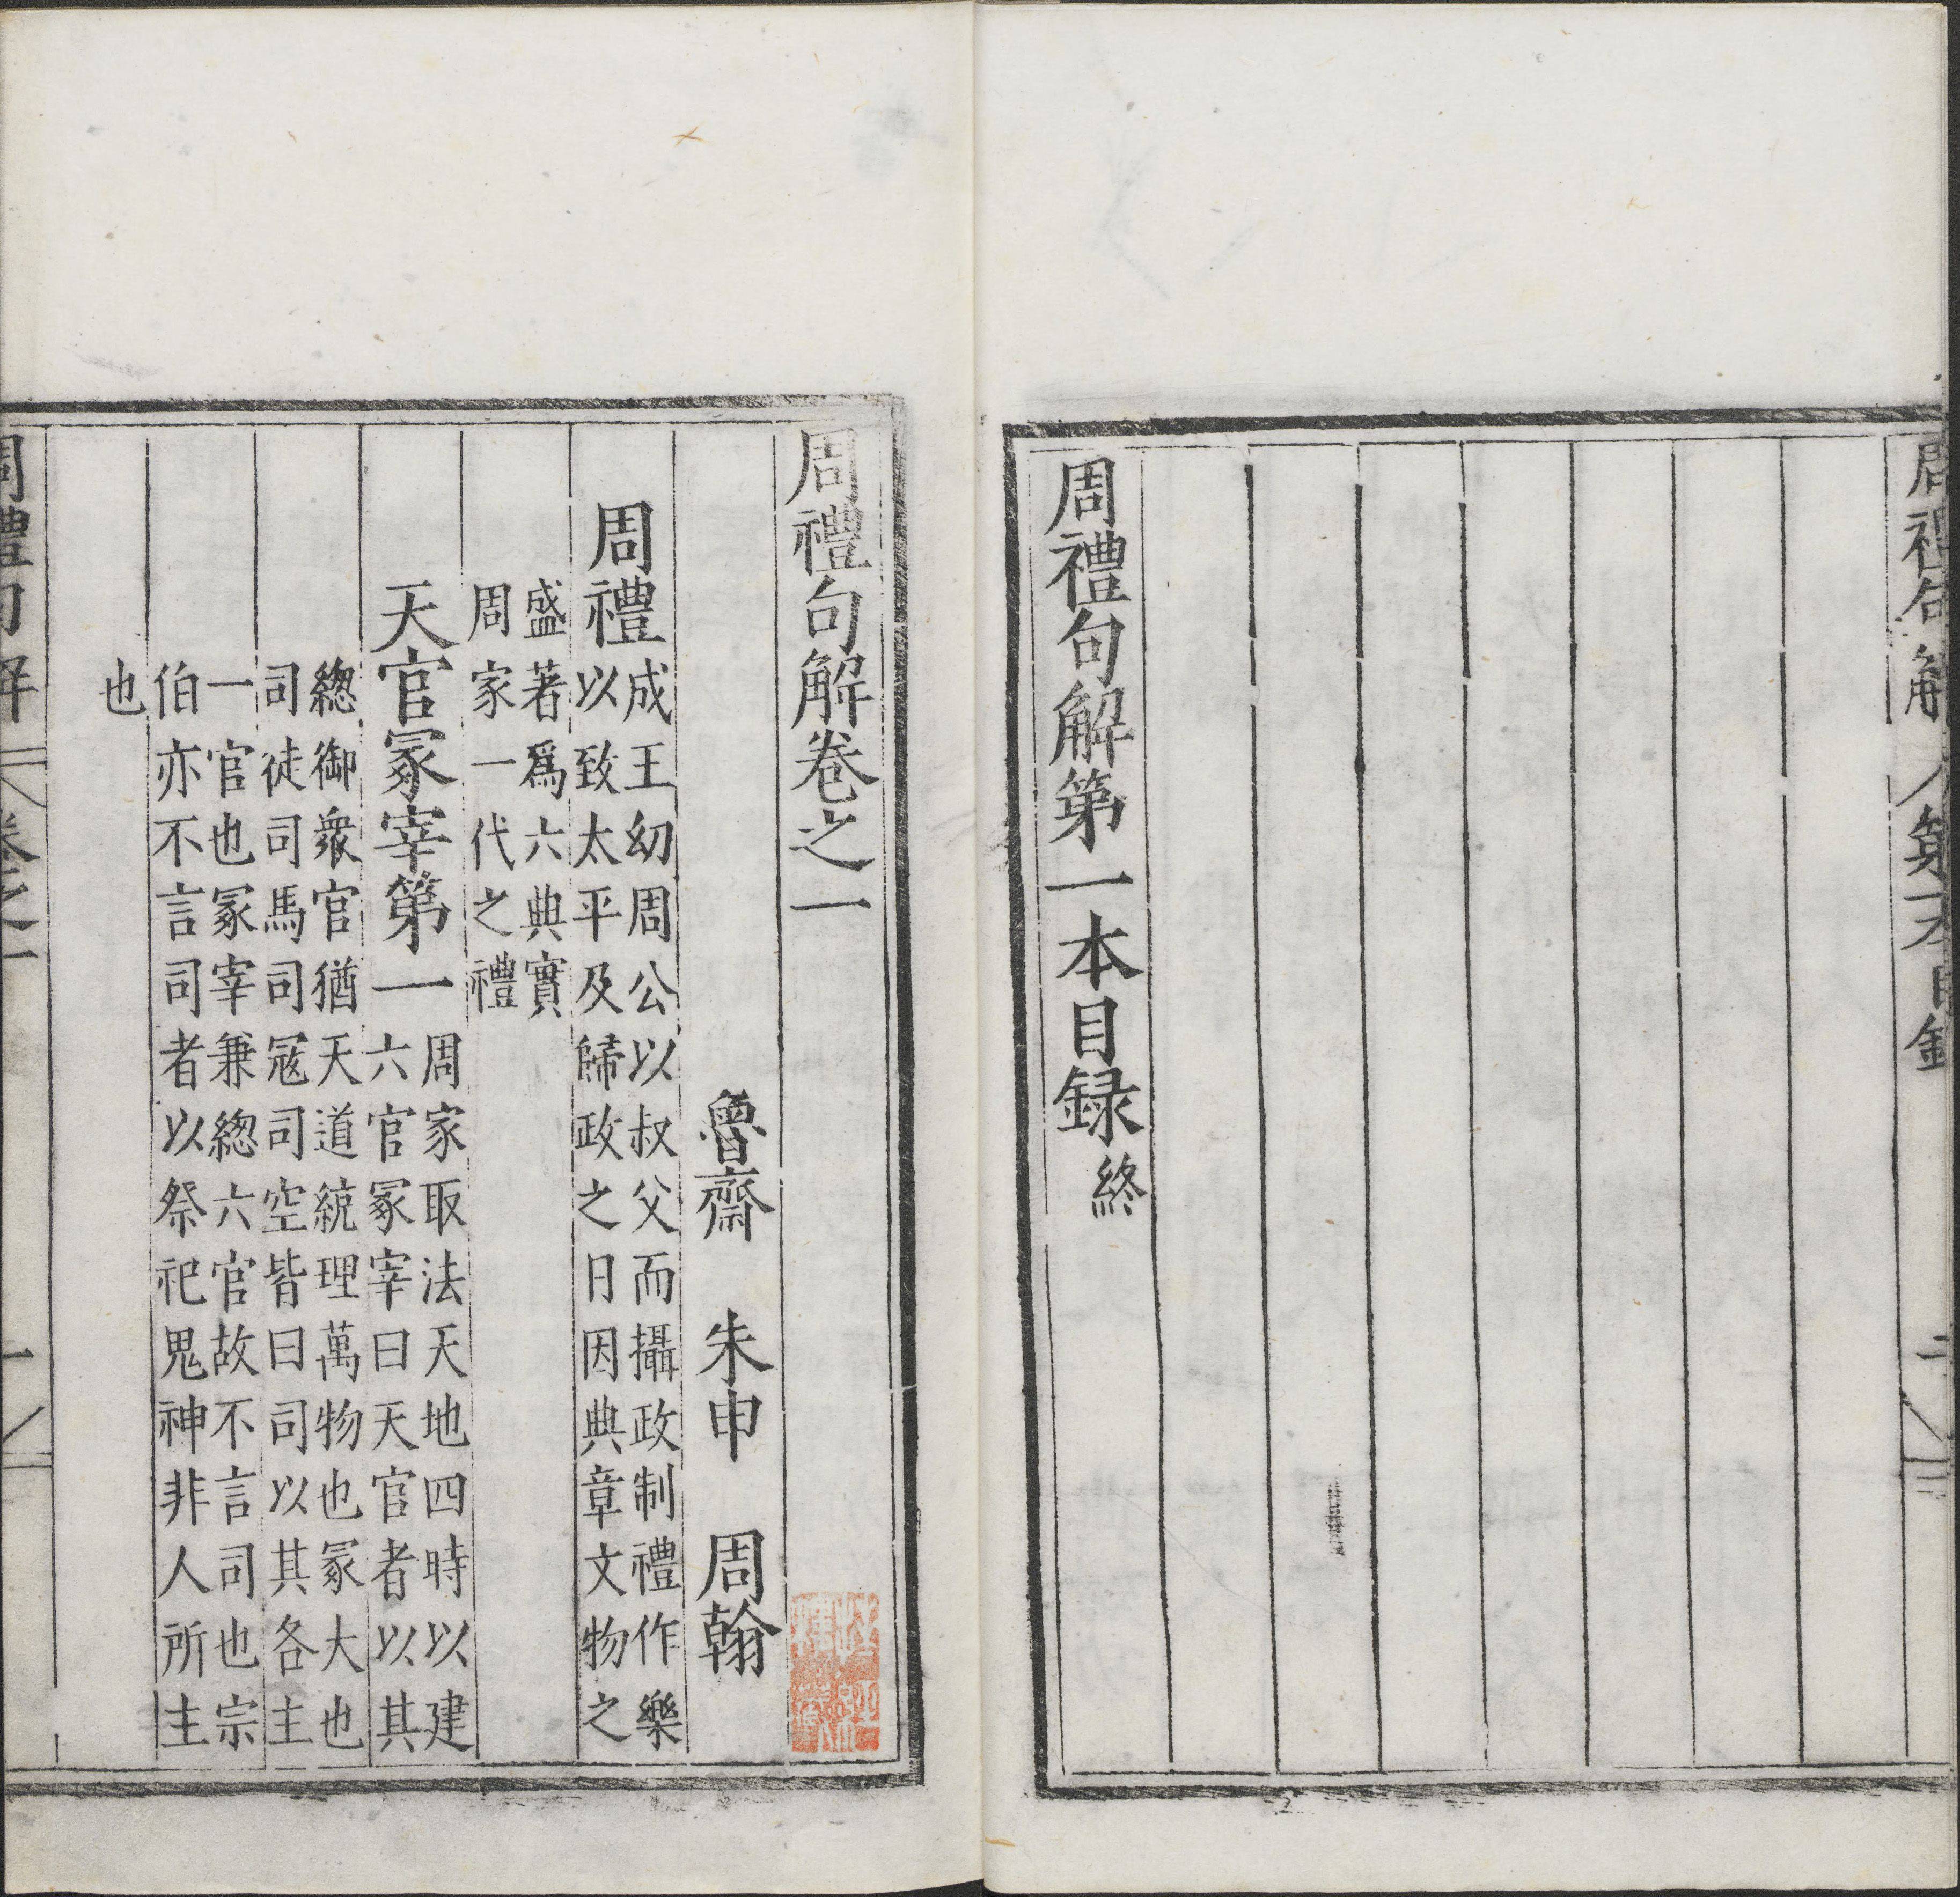 周禮句解 第一本目錄 二
周禮句解第一本目録終
周禮句解卷之一
魯齋 朱申 周翰
周禮
成王幼周公以叔父而攝政制禮作樂
以致太平及歸政之日因典章文物之
盛著爲六典實
周家一代之禮
天官冢宰第一
周家取法天地四時以建
六官冢宰曰天官者以其
緫御衆官猶天道統理萬物也冢大也
司徒司馬司冦司空皆曰司以其各主
一官也冢宰兼緫六官故不言司也宗
伯亦不言司者以祭祀鬼神非人所主
也
周禮句解 卷之一 一